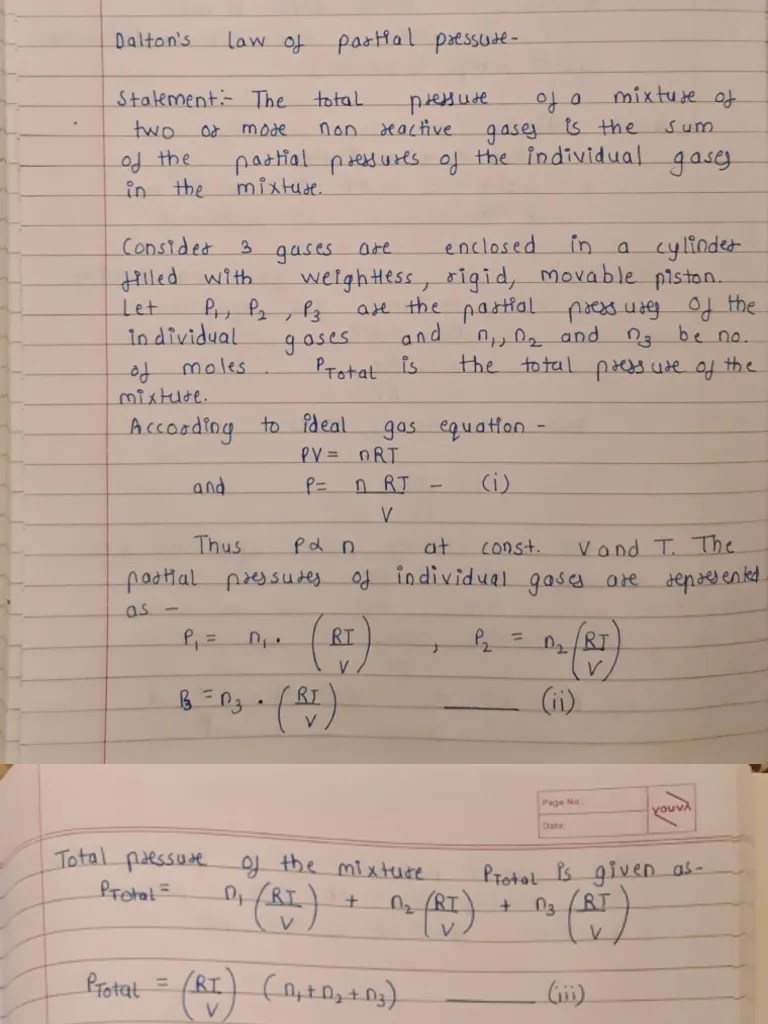 Dalton's law of partial pressure-
Statement:- The total pressure of a mixture of
two or more non reactive gases is the sum
of the partial pressures of the individual gases
in the mixture.
Consider 3 gases are enclosed in a cylinder
filled with weightless, rigid, movable piston.
Let P₁, P₂, P₃ are the partial pressures of the
individual gases and n₁, n₂ and n₃ be no.
of moles. P_Total is the total pressure of the
mixture.
According to ideal gas equation -
PV = nRT
and P = n RT/V - (i)
Thus P∝ n at const. V and T. The
partial pressures of individual gases are represented
as -
P₁ = n₁ . (RT/V) , P₂ = n₂ (RT/V)
P₃ = n₃ . (RT/V) ______ (ii)
Page No.:
Date:
YOUVA
Total pressure of the mixture P_Total is given as-
P_Total = n₁ (RT/V) + n₂ (RT/V) + n₃ (RT/V)
P_Total = (RT/V) (n₁+n₂+n₃) ______ (iii)